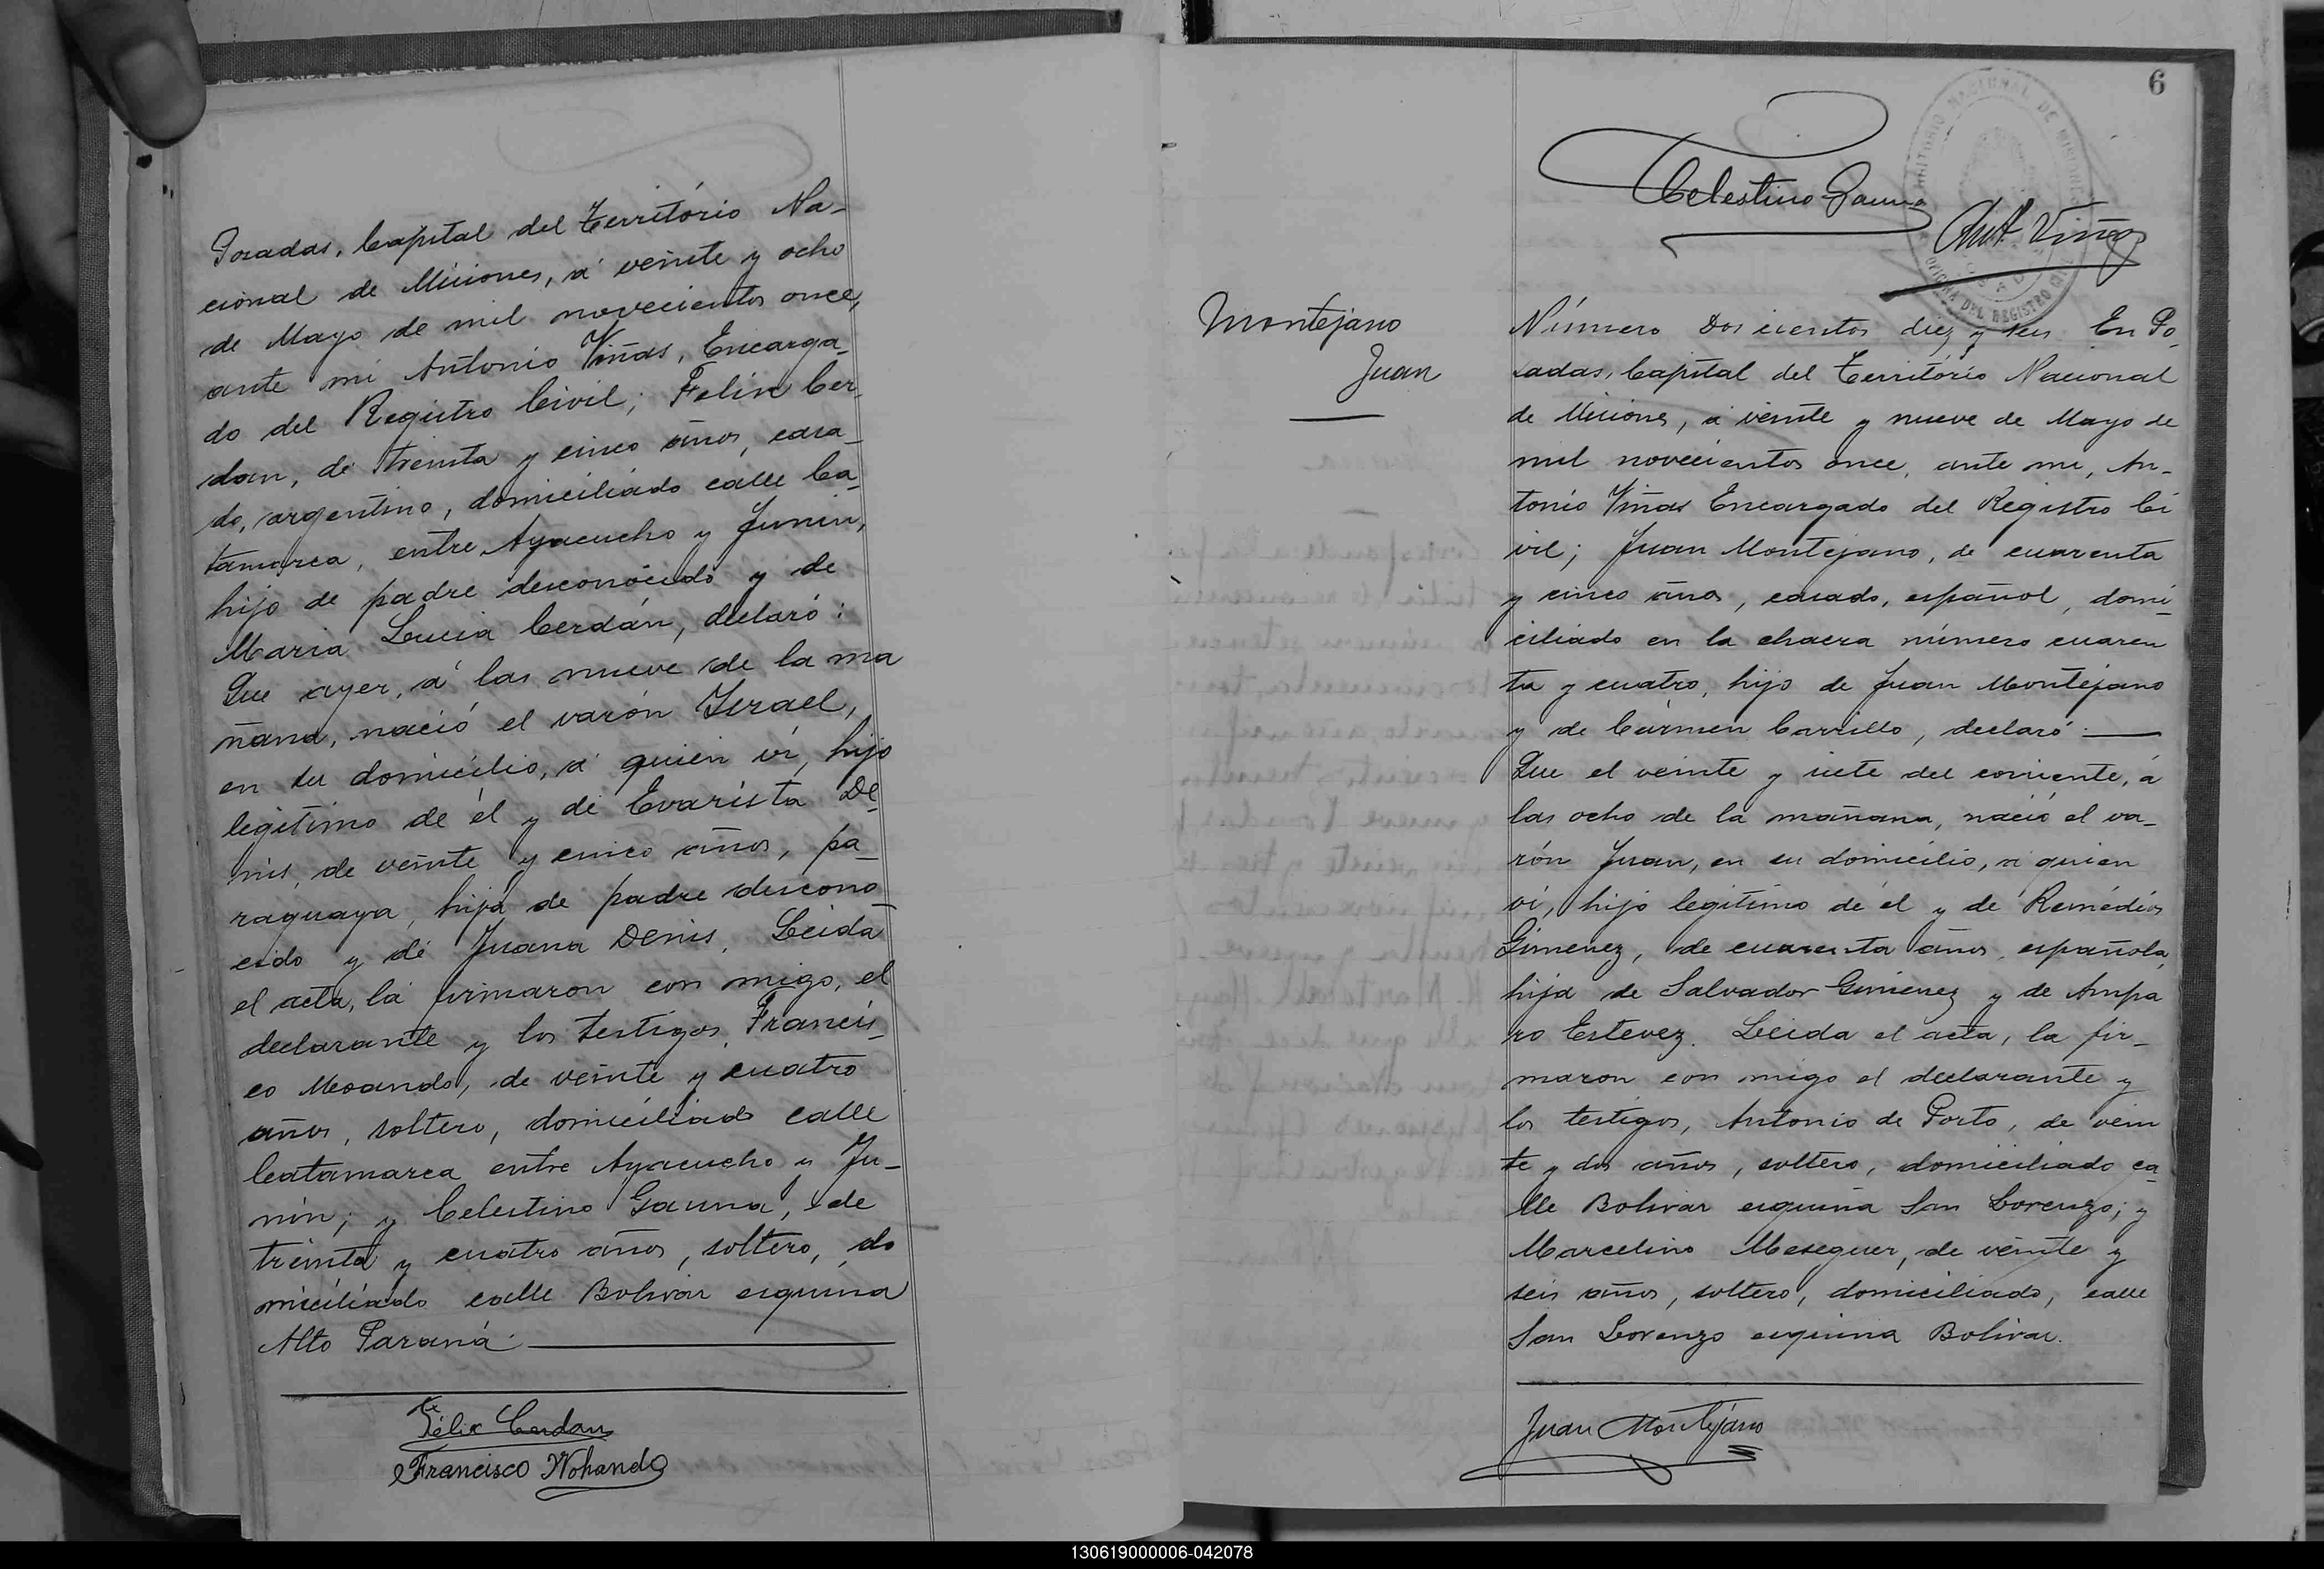 Posadas, Capital del Território Na-
cional de Misiones, á veinte y ocho
de Mayo de mil novecientos once,
ante mi Antonio Viñas, Encarga-
do del Registro Civil; Felix Cer-
dan, de treinta y cinco años, casa-
do, argentino, domiciliado calle Ca-
tamarca, entre Ayacucho y Junin,
hijo de padre desconocido y de
Maria Lucia Cerdán, declaró:
Que ayer, á las nueve de la ma
ñana, nació el varón Israel,
en su domicilio, á quien ví, hijo
legítimo de él y de Evarista De-
nis, de veinte y cinco años, pa-
raguaya, hija de padre descono-
cido y de Juana Denis. Leida
el acta, la firmaron con migo, el
declarante y los testigos, Francis-
co Moando, de veinte y cuatro
años, soltero, domiciliado calle
Catamarca entre Ayacucho y Ju-
nin; y Celestino Gauna, de
treinta y cuatro años, soltero, do
miciliado calle Bolivar esquina
Alto Paraná.
Félix Cerdan
Francisco Mohando
6
TERRITORIO NACIONAL DE MISIONES
OFICINA DEL REGISTRO CIVIL
POSADAS
Celestino Gauna
Ant Viñas
Montejano
Juan
Número Doscientos diez y seis En Po-
sadas, Capital del Território Nacional
de Misiones, á veinte y nueve de Mayo de
mil novecientos once, ante mi, An-
tonio Viñas Encargado del Registro Ci
vil; Juan Montejano, de cuarenta
y cinco años, casado, español, domi-
ciliado en la chacra número cuaren
ta y cuatro, hijo de Juan Montejano
y de Cármen Carrillo, declaró:
Que el veinte y siete del corriente, á
las ocho de la mañana, nació el va-
rón Juan, en su domicilio, á quien
ví, hijo legítimo de él y de Remédios
Gimenez, de cuarenta años, española,
hija de Salvador Gimenez y de Ampa
ro Estevez. Leida el acta, la fir-
maron con migo el declarante y
los testigos, Antonio de Porto, de vein
te y dos años, soltero, domiciliado ca-
lle Bolivar esquina San Lorenzo; y
Marcelino Meseguer, de veinte y
seis años, soltero, domiciliado, calle
San Lorenzo esquina Bolivar.
Juan Montejano
130619000006-042078